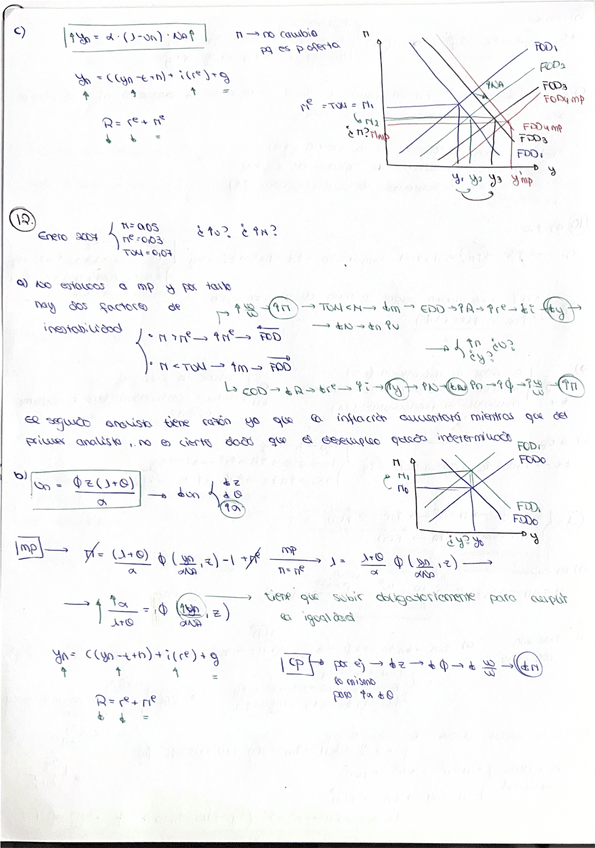 c) ↑yn = α · (1-un) · Na↑ π → no cambia
pq es poferta
yn = c(yn-t+n) + i(re) + g
↑ ↑ ↑ =
R = re + πe
↓ ↓ =
π
πe = TCM = π1
π2
¿π? πmp
↑NA
FOD1
FOD2
FOD3
FOD4mp
FDD4mp
FDD3
FDD1
y1 y2 y3 ymp y
12. Enero 2007 { π=0,05
πe=0,03
TCM=0,07
¿U? ¿↑π?
a) No estamos a mp y por tanto
hay dos factores de
inestabilidad
• π > πe → ↑πe → FOD
• π < TCM → ↑m → FDD
↑ w/w → ↑π → TCM < π → ↓m → EDD → ↑R → ↑re → ↓i → ↓y →
→ ↓N → ↓n ↑u
→ { ↑π ¿U?
¿y?
↳ EOD → ↓R → ↓re → ↑i → ↑y → ↑N → → ↑ϕ → ↑ w/w → ↑π
el segundo analista tiene razón ya que la inflación aumentará mientras que del
primer analista, no es cierto dado que el desempleo queda indeterminado
b) un = ϕz(1+θ) / α → ↓un { ↓z
↓θ
↑α
π
π1
π0
FOD1
FOD0
FDD1
FDD0
¿y? y0 y
mp → π = (1+θ)/α ϕ(yn/αNa, z) - 1 + πe mp π=πe → 1 = 1+θ/α ϕ(yn/αNa, z) →
→ ↑ ↑α/1+θ = ϕ(↑yn/αNa, z) → tiene que subir obligatoriamente para cumplir
la igualdad
yn = c(yn-t+n) + i(re) + g
↑ ↑ ↑ =
R = re + πe
↓ ↓ =
CP → por ej → ↓z → ↓ϕ → ↓ w/w → ↓π
lo mismo
para ↑α ↓θ